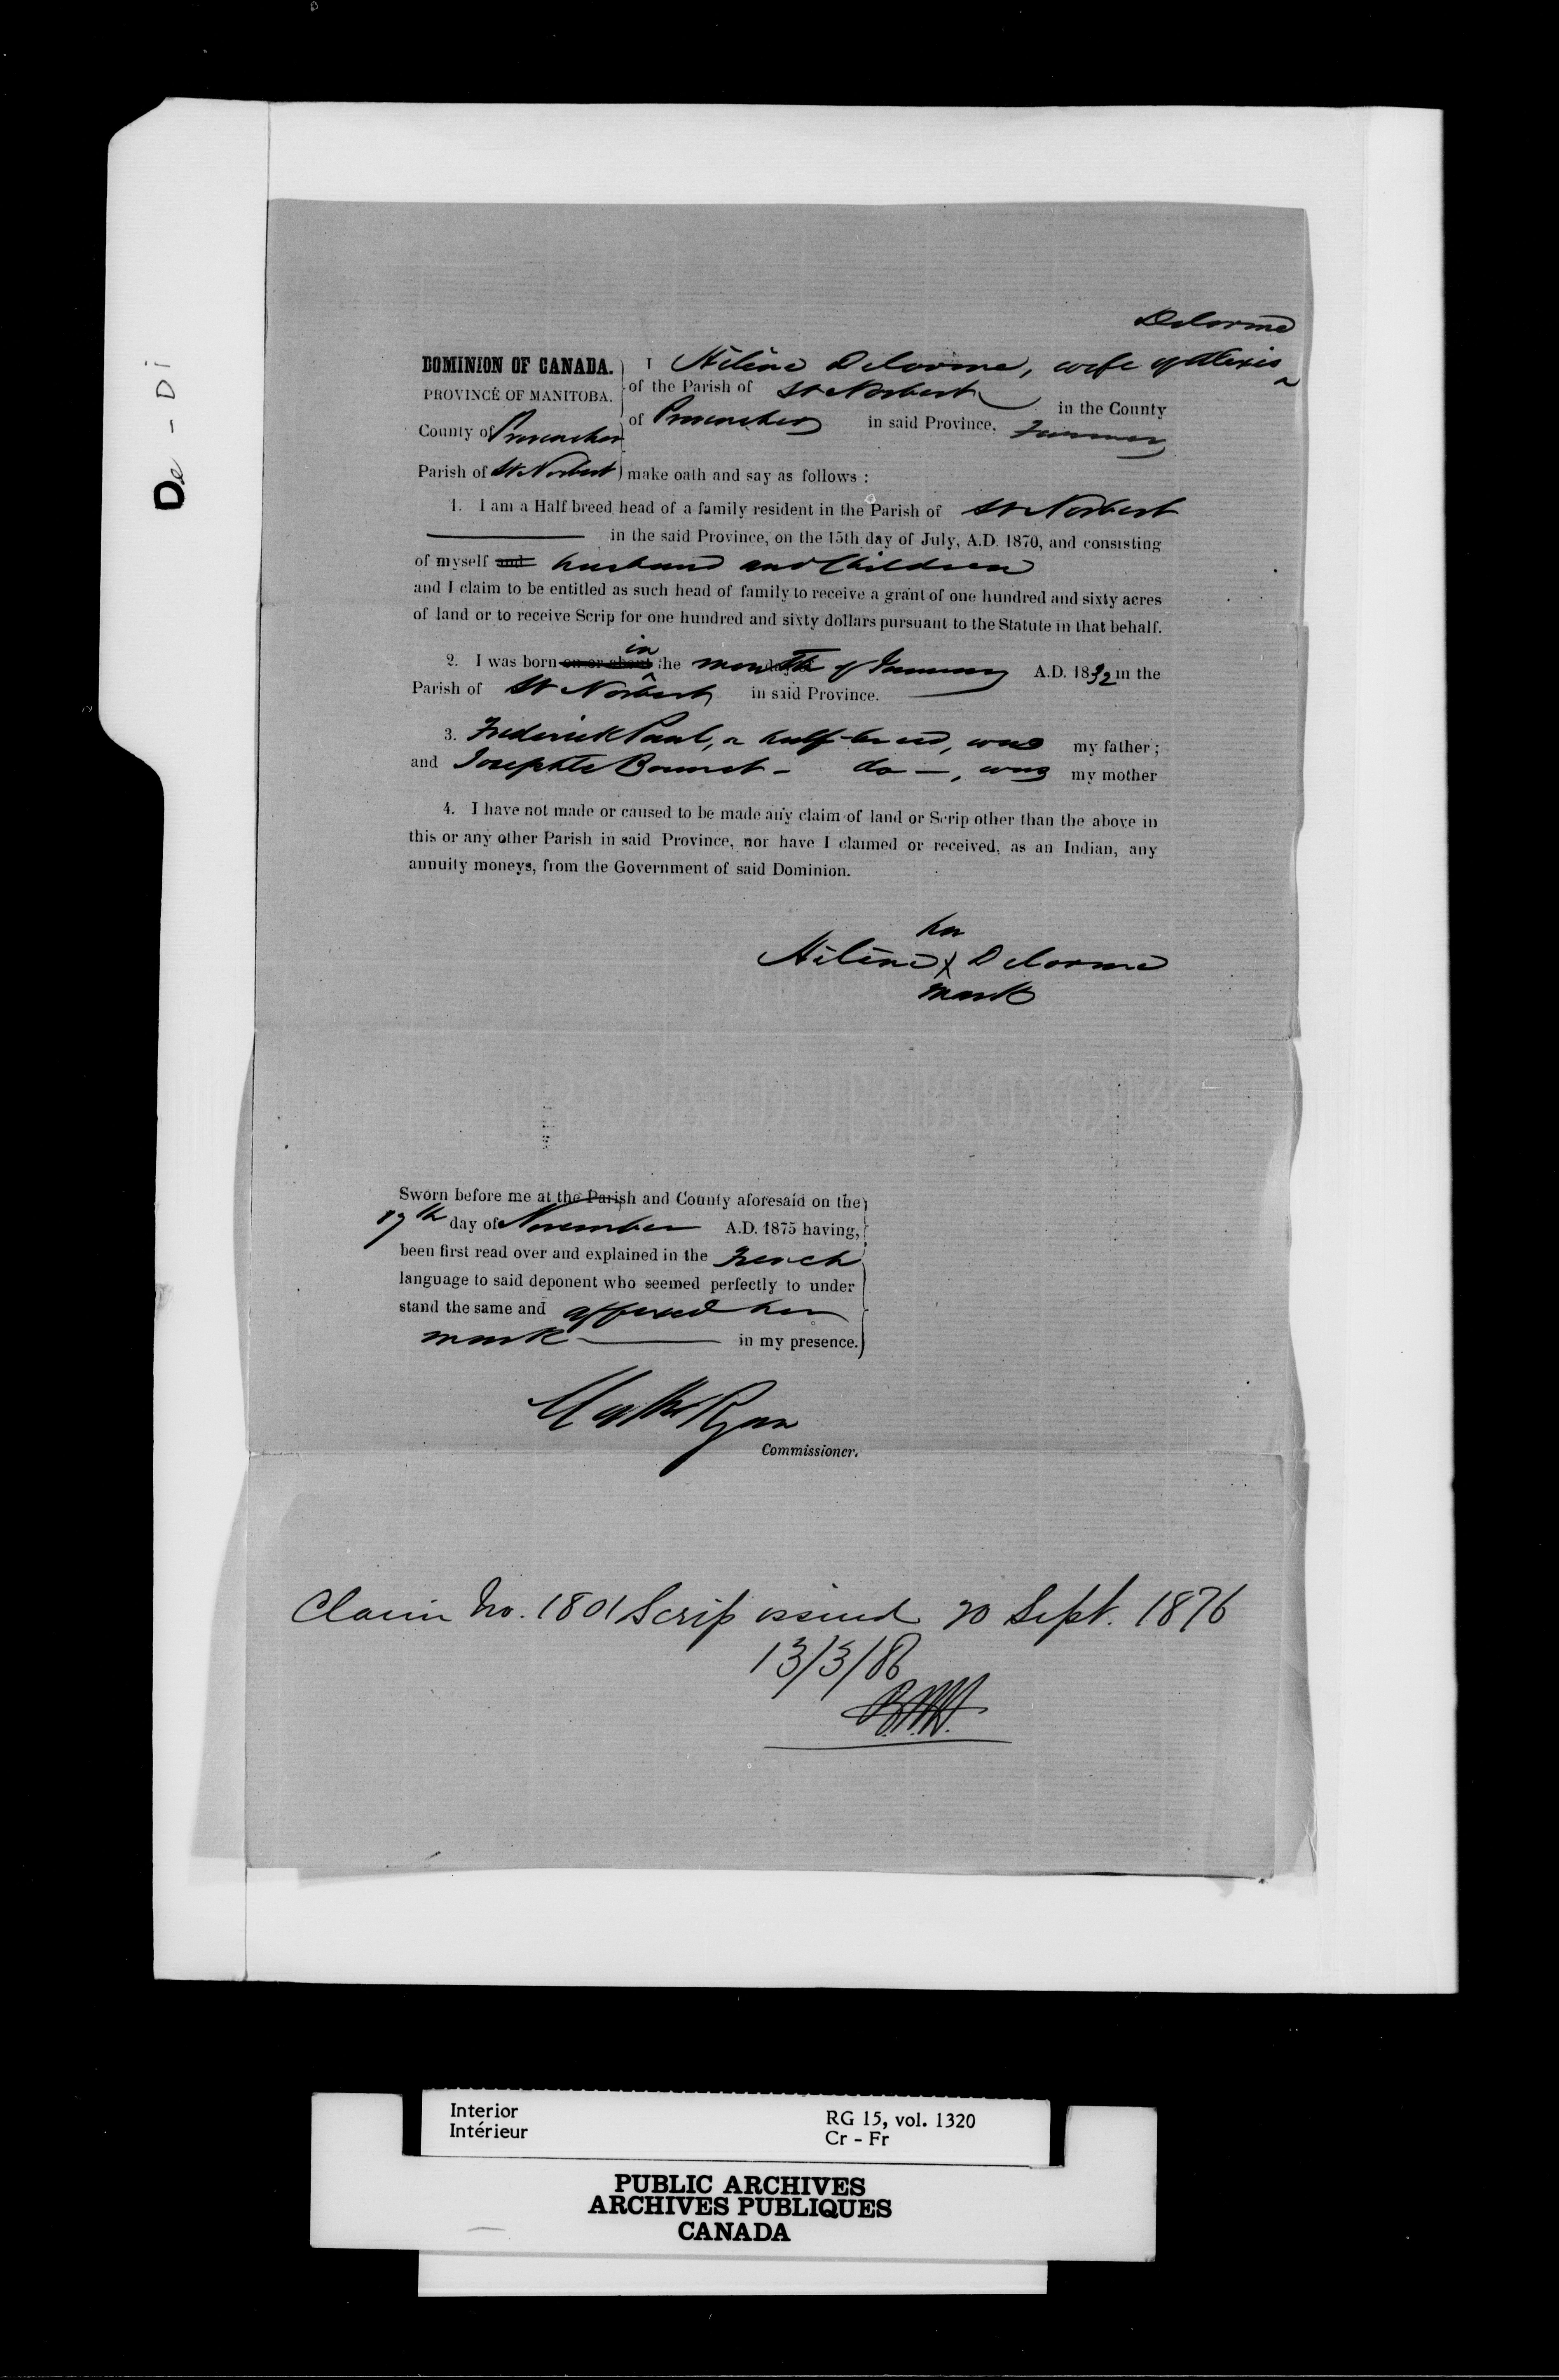 De - Di
Delorme
DOMINION OF CANADA. I Hélène Delorme, wife of Alexis
PROVINCE OF MANITOBA. of the Parish of St Norbert in the County
County of Provencher of Provencher in said Province, Farmer
Parish of St Norbert make oath and say as follows :
1. I am a Half breed head of a family resident in the Parish of St Norbert
in the said Province, on the 15th day of July, A.D. 1870, and consisting
of myself and husband and Children
and I claim to be entitled as such head of family to receive a grant of one hundred and sixty acres
of land or to receive Scrip for one hundred and sixty dollars pursuant to the Statute in that behalf.
in
2. I was born on or about the month of January A.D. 1832 in the
Parish of St Norbert in said Province.
3. Frederick Paul, a half-breed, was my father ;
and Josephte Bounet - do -, was my mother
4. I have not made or caused to be made any claim of land or Scrip other than the above in
this or any other Parish in said Province, nor have I claimed or received, as an Indian, any
annuity moneys, from the Government of said Dominion.
her
Hélène X Delorme
mark
Sworn before me at the Parish and County aforesaid on the
17th day of November A.D. 1875 having,
been first read over and explained in the French
language to said deponent who seemed perfectly to under
stand the same and affixed her
mark in my presence.
Matth Ryan
Commissioner.
Claim No. 1801 Scrip issued 20 Sept. 1876
13/3/86
Interior RG 15, vol. 1320
Intérieur Cr - Fr
PUBLIC ARCHIVES
ARCHIVES PUBLIQUES
CANADA